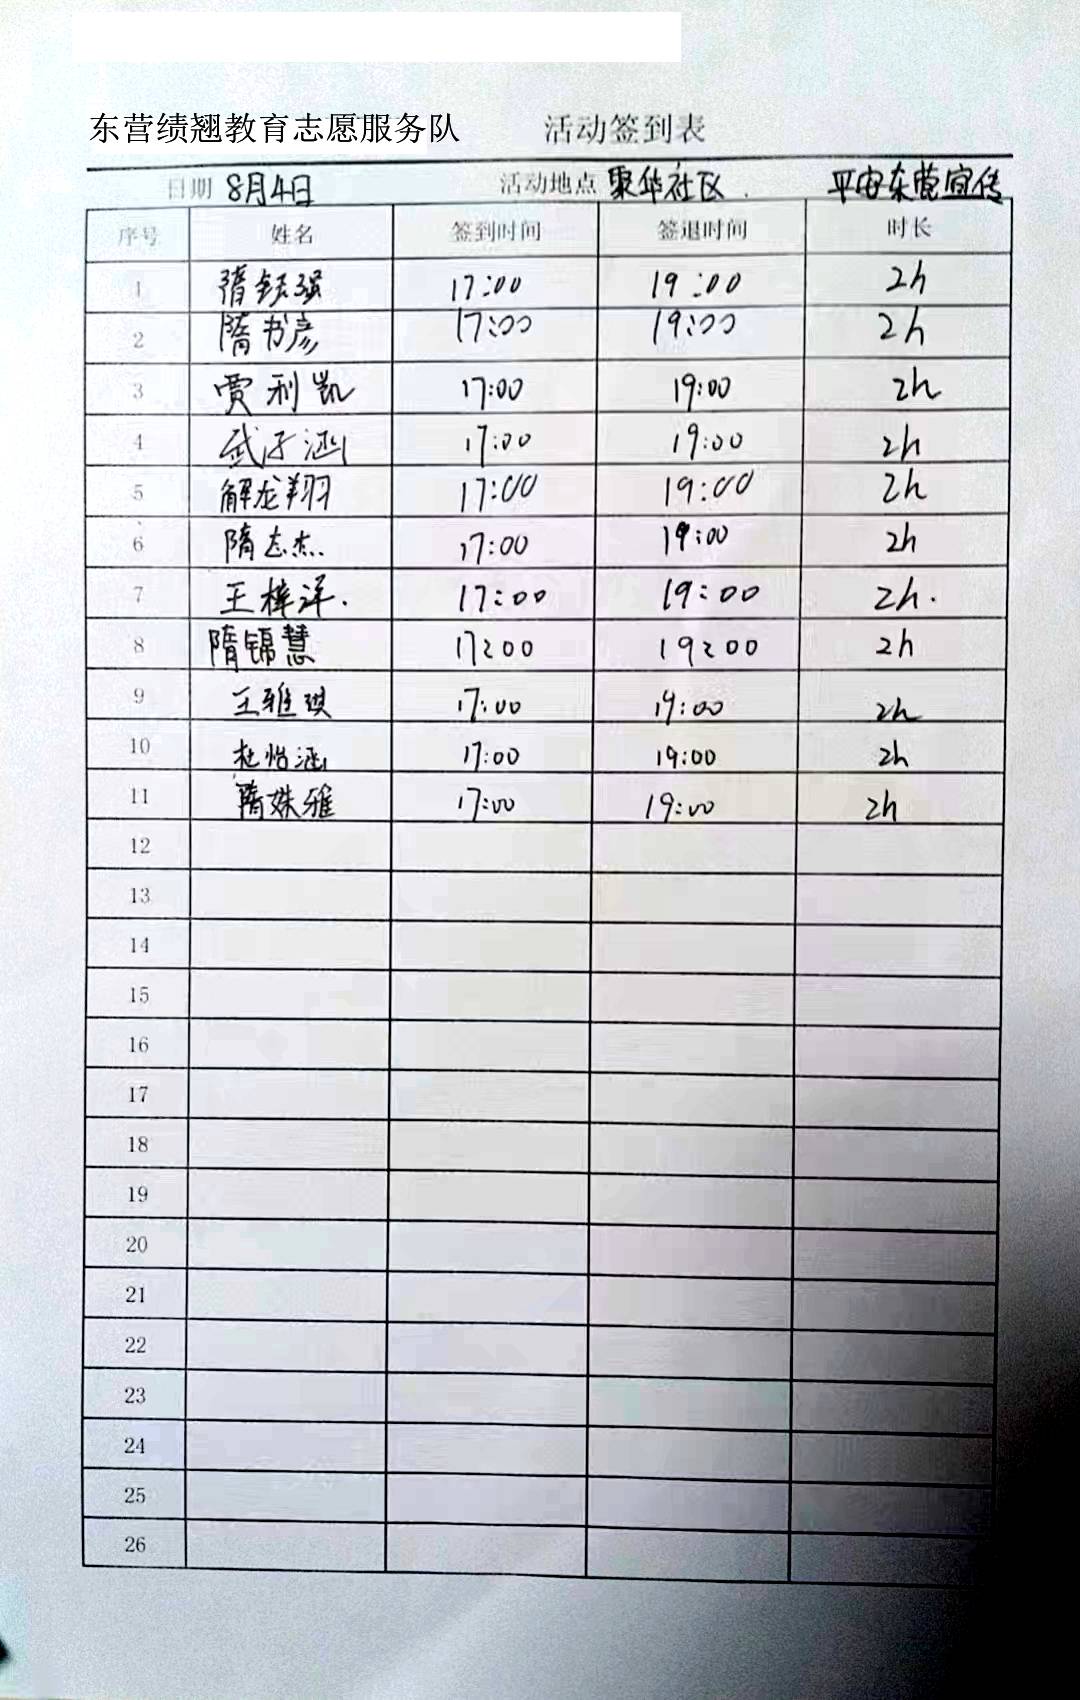 东营绩翘教育志愿服务队 活动签到表
日期 8月4日 活动地点 聚华社区 平安东营宣传
序号 姓名 签到时间 签退时间 时长
1 隋钰强 17:00 19:00 2h
2 隋书彦 17:00 19:00 2h
3 贾利凯 17:00 19:00 2h
4 武子涵 17:00 19:00 2h
5 解龙翔 17:00 19:00 2h
6 隋志杰 17:00 19:00 2h
7 王梓洋 17:00 19:00 2h
8 隋锦慧 17:00 19:00 2h
9 王雅琪 17:00 19:00 2h
10 杜怡涵 17:00 19:00 2h
11 隋姝雅 17:00 19:00 2h
12
13
14
15
16
17
18
19
20
21
22
23
24
25
26